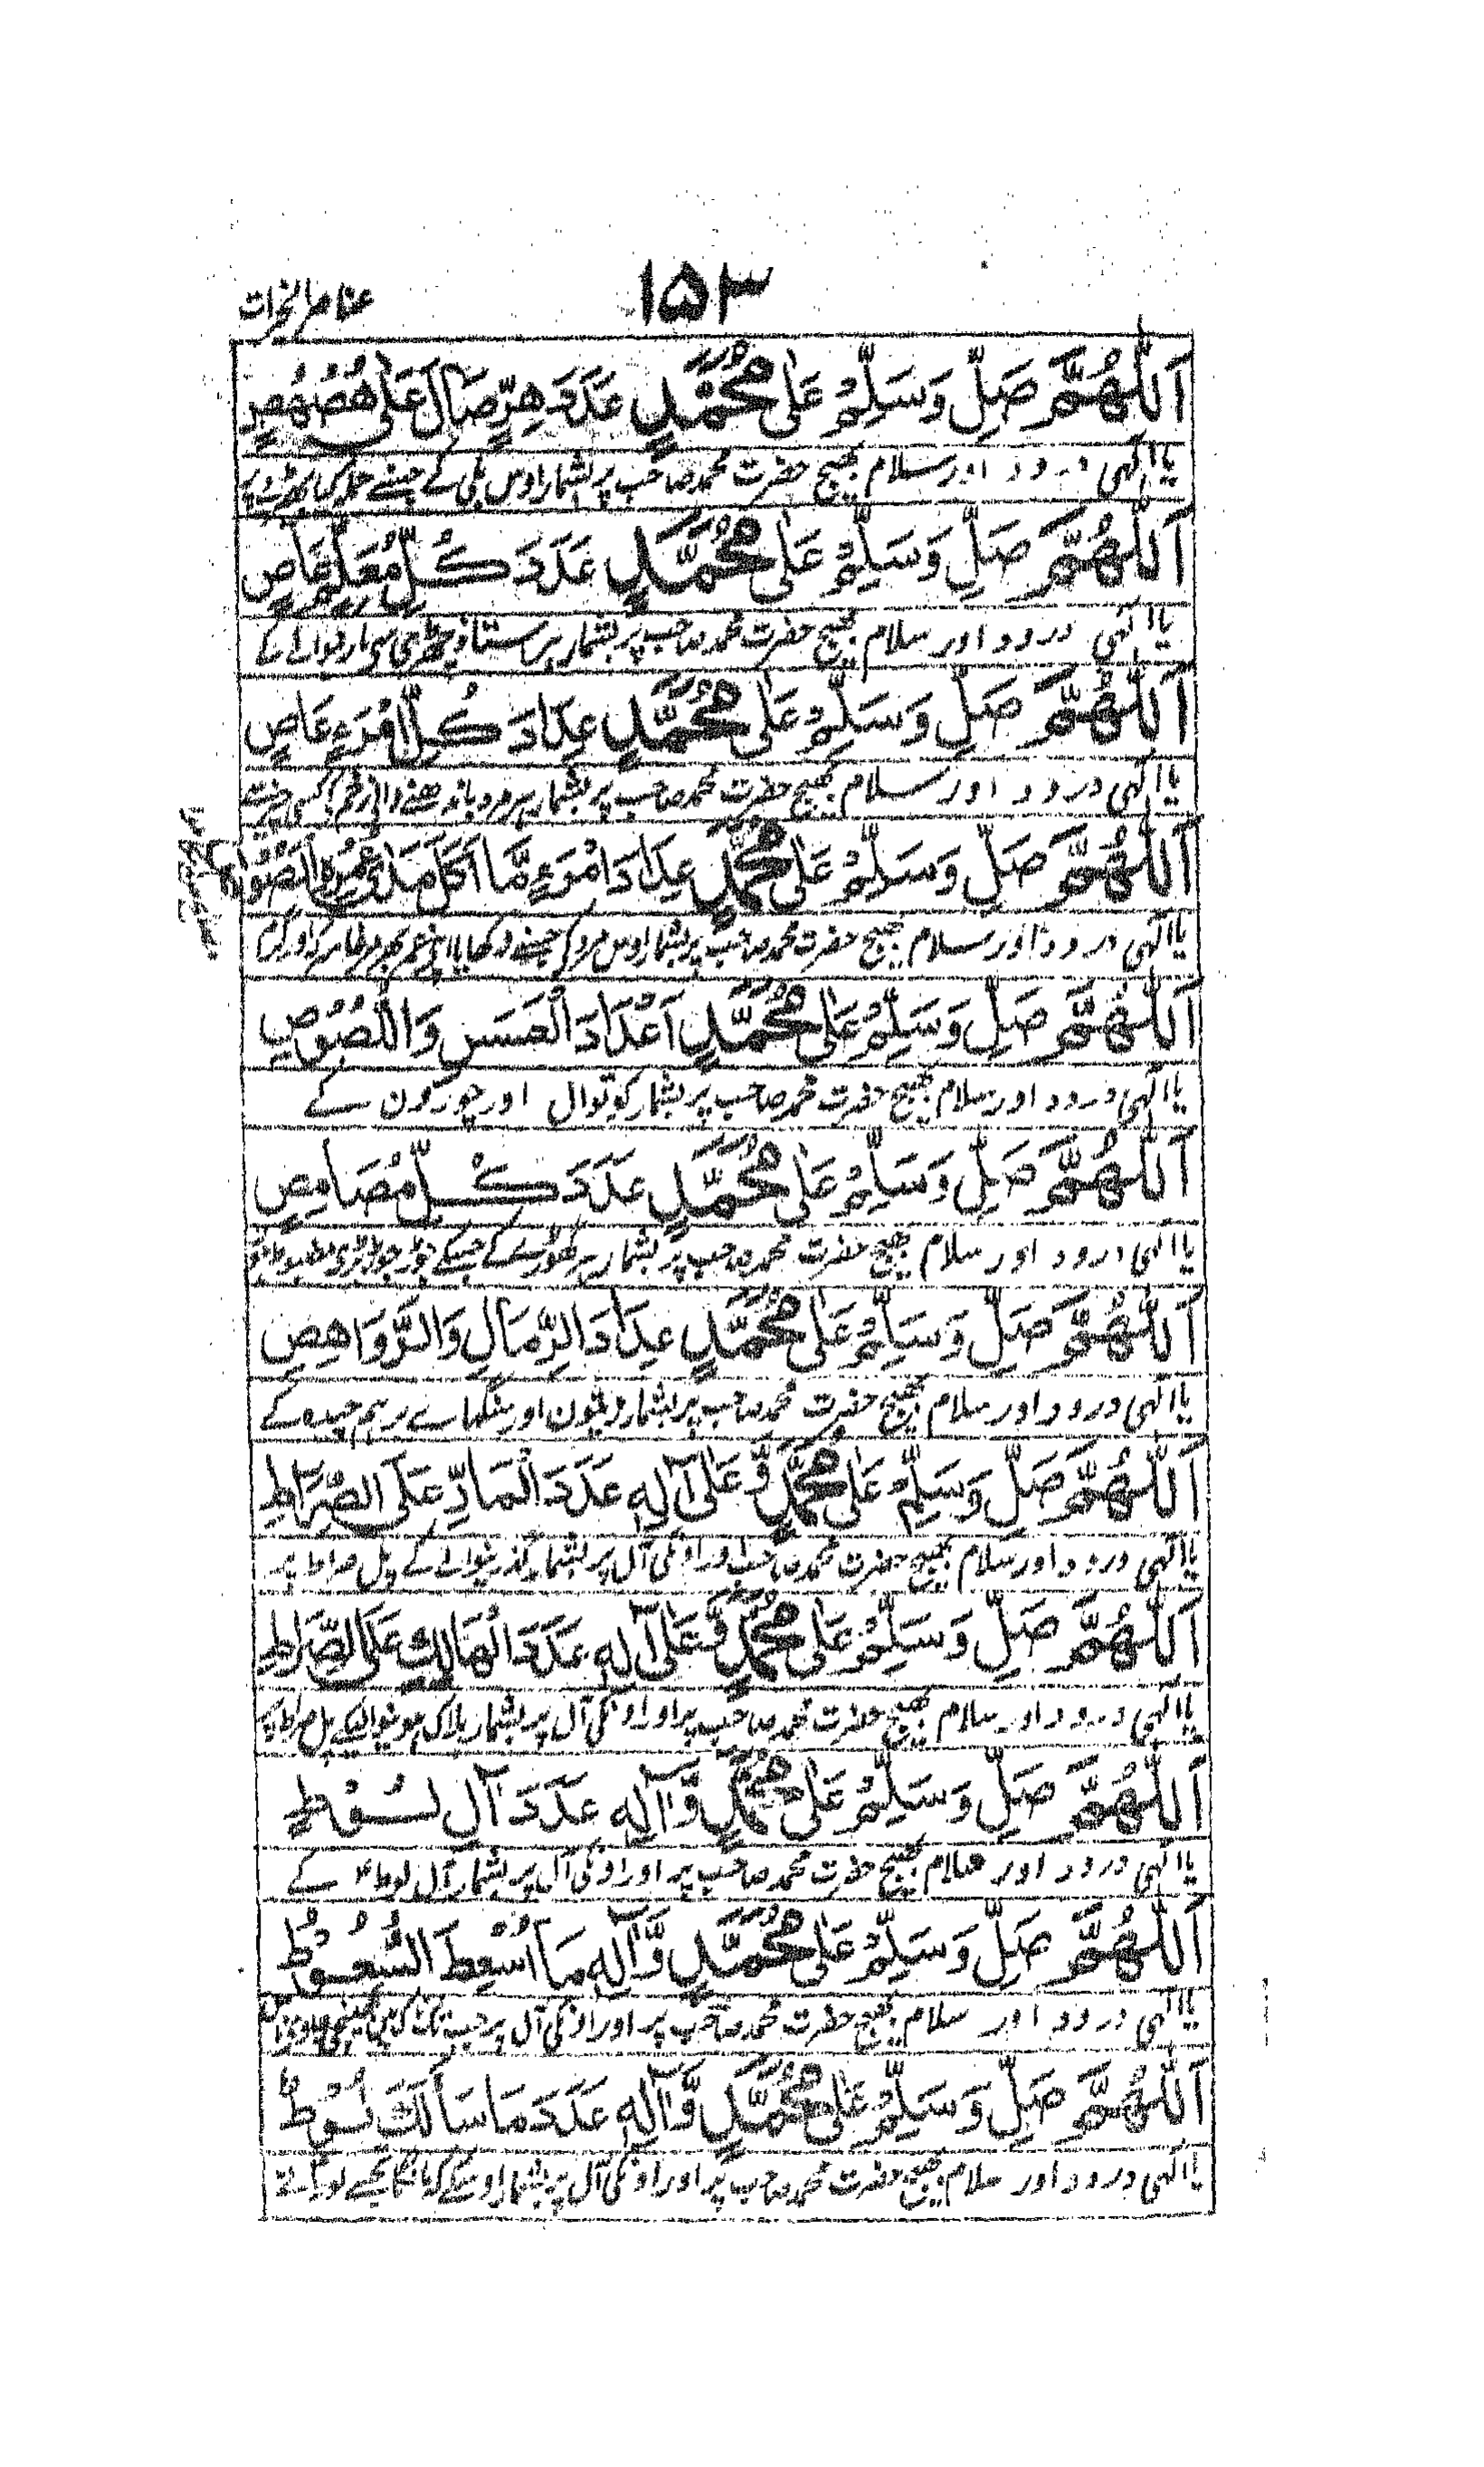 ۱۵۳
عناصر الخیرات
اَللّٰهُمَّ صَلِّ وَسَلِّمْ عَلٰی مُحَمَّدٍ عَدَدَ هِرٍّ صَالَ عَلٰی هُصْهُصٍ
یا الٰہی درود اور سلام بھیج حضرت محمد صاحب پر بشمار اوس بلی کے جسنے حملہ کی بھیڑئیے پر
اَللّٰهُمَّ صَلِّ وَسَلِّمْ عَلٰی مُحَمَّدٍ عَدَدَ كُلِّ مُعَلِّمٍ عَاصٍ
یا الٰہی درود اور سلام بھیج حضرت محمد صاحب پر بشمار ہر استاذ چھڑی سی مارنوالے کے
اَللّٰهُمَّ صَلِّ وَسَلِّمْ عَلٰی مُحَمَّدٍ عِدَادَ كُلِّ امْرَءٍ عَاصٍ
یا الٰہی درود اور سلام بھیج حضرت محمد صاحب پر بشمار ہر مرد باندھنے والی زخم کسی
اَللّٰهُمَّ صَلِّ وَسَلِّمْ عَلٰی مُحَمَّدٍ عِدَادَ امْرَءٍ مَّا اَكَلَ مَدٰی عُمُرِهِ
یا الٰہی درود اور سلام بھیج حضرت محمد صاحب پر بشمار اوس مرد کی جسنے نہ کھایا اپنی عمر بھر
اَللّٰهُمَّ صَلِّ وَسَلِّمْ عَلٰی مُحَمَّدٍ اَعْدَادَ الْعَسَسِ وَاللُّصُوْصِ
یا الٰہی درود اور سلام بھیج حضرت محمد صاحب پر بشمار کوتوال اور چورون کے
اَللّٰهُمَّ صَلِّ وَسَلِّمْ عَلٰی مُحَمَّدٍ عَدَدَ كُلِّ مُصَامِصٍ
یا الٰہی درود اور سلام بھیج حضرت محمد صاحب پر بشمار ہر گھوڑے کے جسکے جوڑ جوڑ بڑی مضبوط
اَللّٰهُمَّ صَلِّ وَسَلِّمْ عَلٰی مُحَمَّدٍ عِدَادَ الرِّمَالِ وَالرَّوَاهِصِ
یا الٰہی درود اور سلام بھیج حضرت محمد صاحب پر بشمار ریتون اور سنگہارے برہم چیدہ کے
اَللّٰهُمَّ صَلِّ وَسَلِّمْ عَلٰی مُحَمَّدٍ وَّعَلٰی آلِهٖ عَدَدَ الْمَارِّ عَلَی الصِّرَاطِ
یا الٰہی درود اور سلام بھیج حضرت محمد صاحب اور اونکی آل پر بشمار گذرنیوالے کے پل صراط پر
اَللّٰهُمَّ صَلِّ وَسَلِّمْ عَلٰی مُحَمَّدٍ وَّعَلٰی آلِهٖ عَدَدَ الْهَالِكِ عَلَی الصِّرَاطِ
یا الٰہی درود اور سلام بھیج حضرت محمد صاحب پر اور اونکی آل پر بشمار ہلاک ہونیوالیکے پل صراط پر
اَللّٰهُمَّ صَلِّ وَسَلِّمْ عَلٰی مُحَمَّدٍ وَّآلِهٖ عَدَدَ آلِ لُوْطٍ
یا الٰہی درود اور سلام بھیج حضرت محمد صاحب پر اور اونکی آل پر بشمار آل لوط کے
اَللّٰهُمَّ صَلِّ وَسَلِّمْ عَلٰی مُحَمَّدٍ وَّآلِهٖ مَا اُسْعِطَ السُّعُوْطُ
یا الٰہی درود اور سلام بھیج حضرت محمد صاحب پر اور اونکی آل پر جب تک
اَللّٰهُمَّ صَلِّ وَسَلِّمْ عَلٰی مُحَمَّدٍ وَّآلِهٖ عَدَدَ مَا سَاَلَكَ لُوْطٌ
یا الٰہی درود اور سلام بھیج حضرت محمد صاحب پر اور اونکی آل پر بشمار اوسکے کہ مانگا تجھسے لوط نے